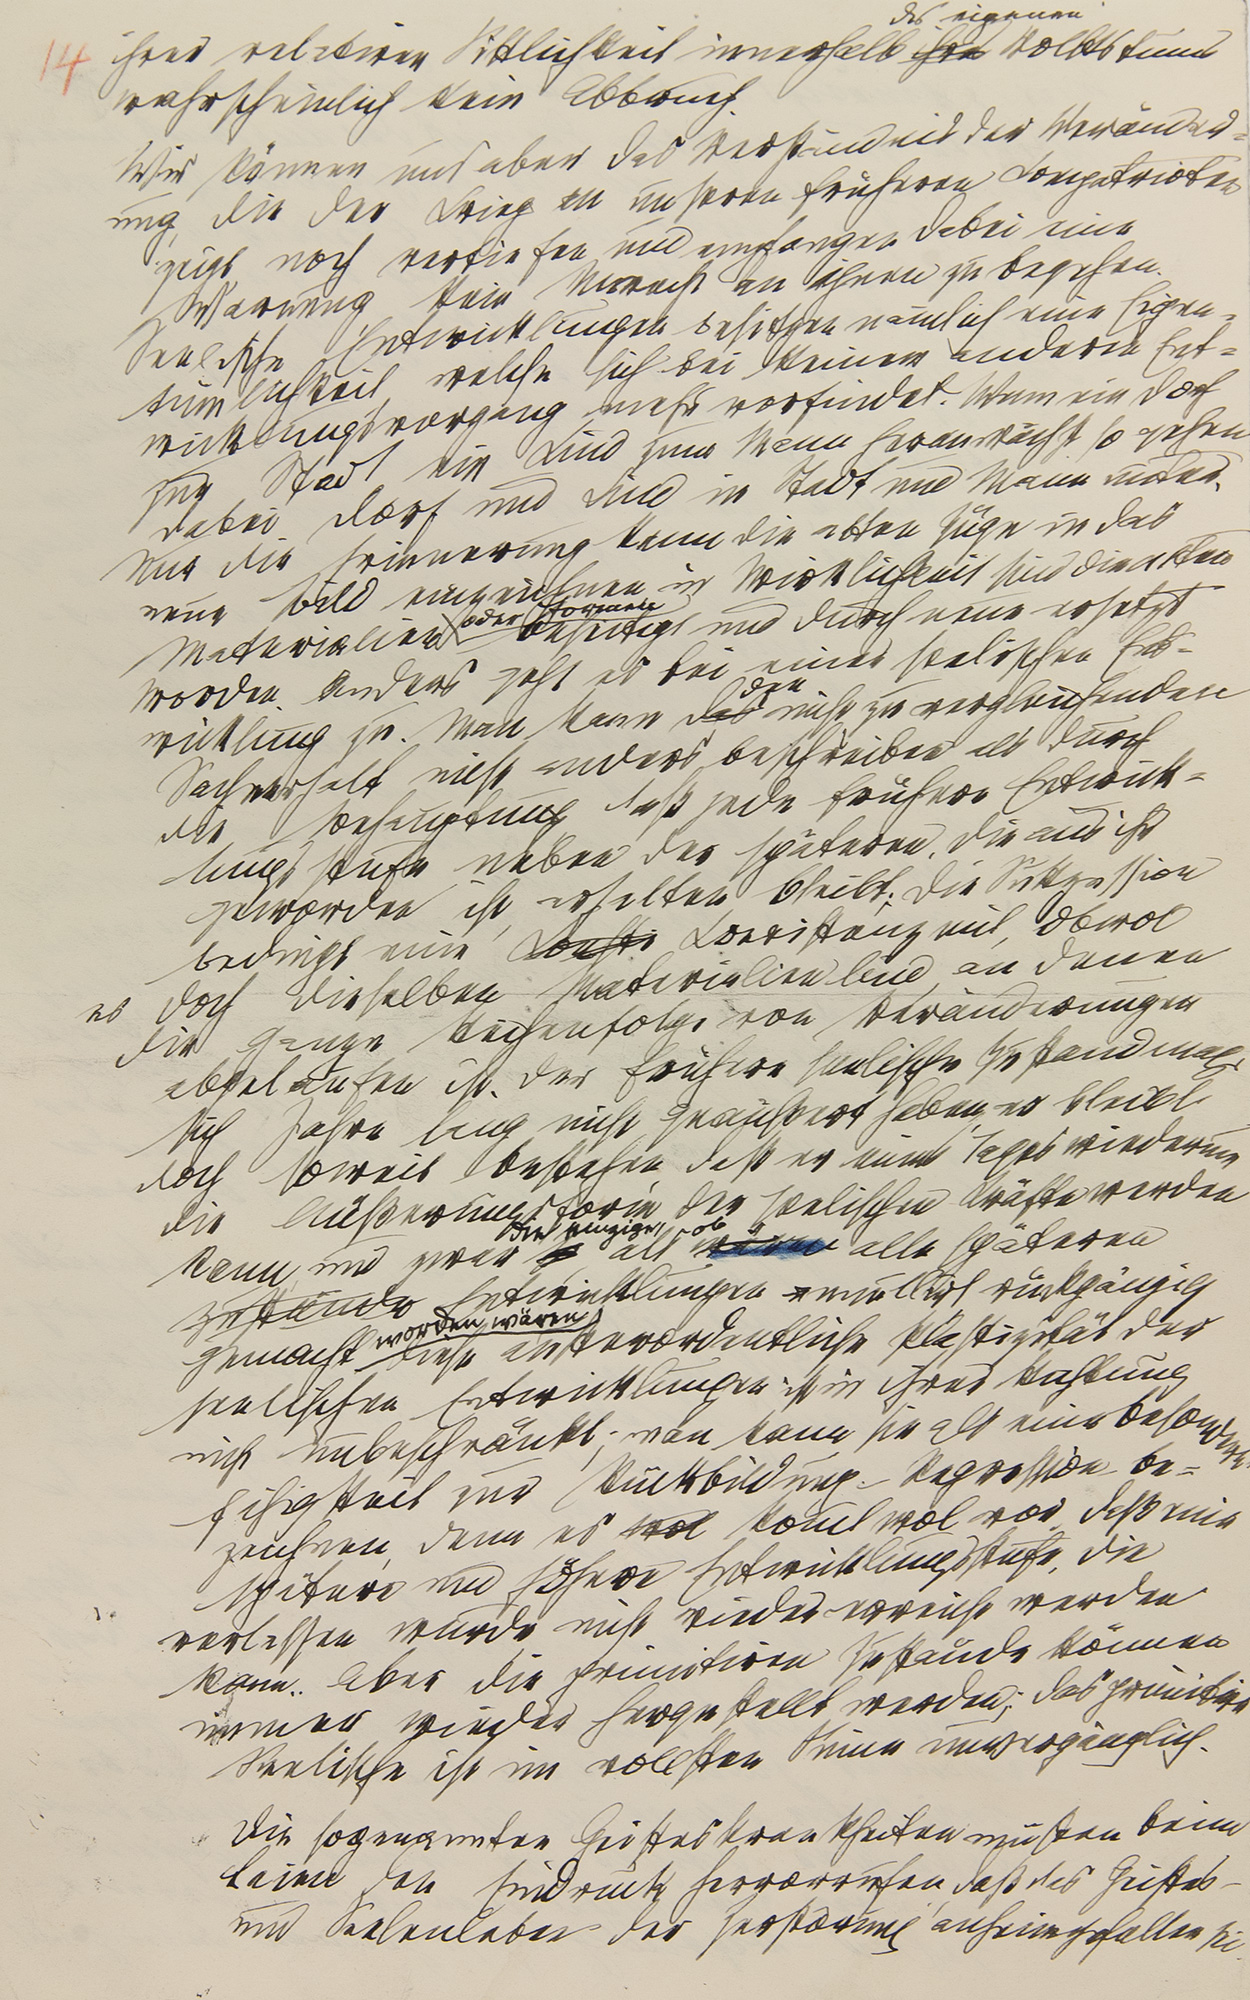 14
des eigenen
ihrer relativen Sittlichkeit innerhalb ihres Volkstums
wahrscheinlich kein Abbruch.
Wir können uns aber das Verständnis der Veränder-
ung, die der Krieg an unseren früheren Compatrioten
zeigt, noch vertiefen und empfangen dabei eine
Warnung kein Unrecht an ihnen zu begehen.
Seelische Entwicklungen besitzen nämlich eine Eigen-
tümlichkeit, welche sich bei keinem anderen Ent-
wicklungsvorgang mehr vorfindet. Wenn ein Dorf
zur Stadt ein Kind zum Mann heranwächst so gehen
dabei Dorf und Kind in Stadt und Mann unter.
Nur die Erinnerung kann die alten Züge in das
neue Bild einzeichnen, in Wirklichkeit sind die alten
oder Formen
Materialien beseitigt und durch neue ersetzt
worden. Anders geht es bei einer seelischen Ent-
den
wicklung zu. Man kann das nicht zu vergleichenden
Sachverhalt nicht anders beschreiben als durch
die Behauptung daß jede frühere Entwick-
lungsstufe neben der späteren, die aus ihr
geworden ist, erhalten bleibt; die Sukzession
bedingt eine Coexistenz mit, obwol
es doch dieselben Materialien sind, an denen
die ganze Reihenfolge von Veränderungen
abgelaufen ist. Der frühere seelische Zustand mag
sich Jahre lang nicht geäußert haben, er bleibt
doch soweit bestehen, daß er eines Tages wiederum
die Äußerungsform der seelischen Kräfte werden
die einzige, ob
kann und zwar als wären alle späteren
Zustände Entwicklungen annullirt rückgängig
worden wären
gemacht Diese außerordentliche Plastizität der
seelischen Entwicklungen ist in ihrer Richtung
nicht unbeschränkt; man kann sie als eine besondere
Fähigkeit zur Rückbildung – Regression – be-
zeichnen, denn es wol komt wol vor, daß eine
spätere und höhere Entwicklungsstufe, die
verlassen wurde nicht wieder erreicht werden
kann. Aber die primitiven Zustände können
immer wieder hergestellt werden; das primitive
Seelische ist im vollsten Sinne unvergänglich.
Die sogenannten Geisteskrankheiten mußten beim
Laien den Eindruck hervorrufen, daß das Geistes-
und Seelenleben der Zerstörung anheimgefallen sei.